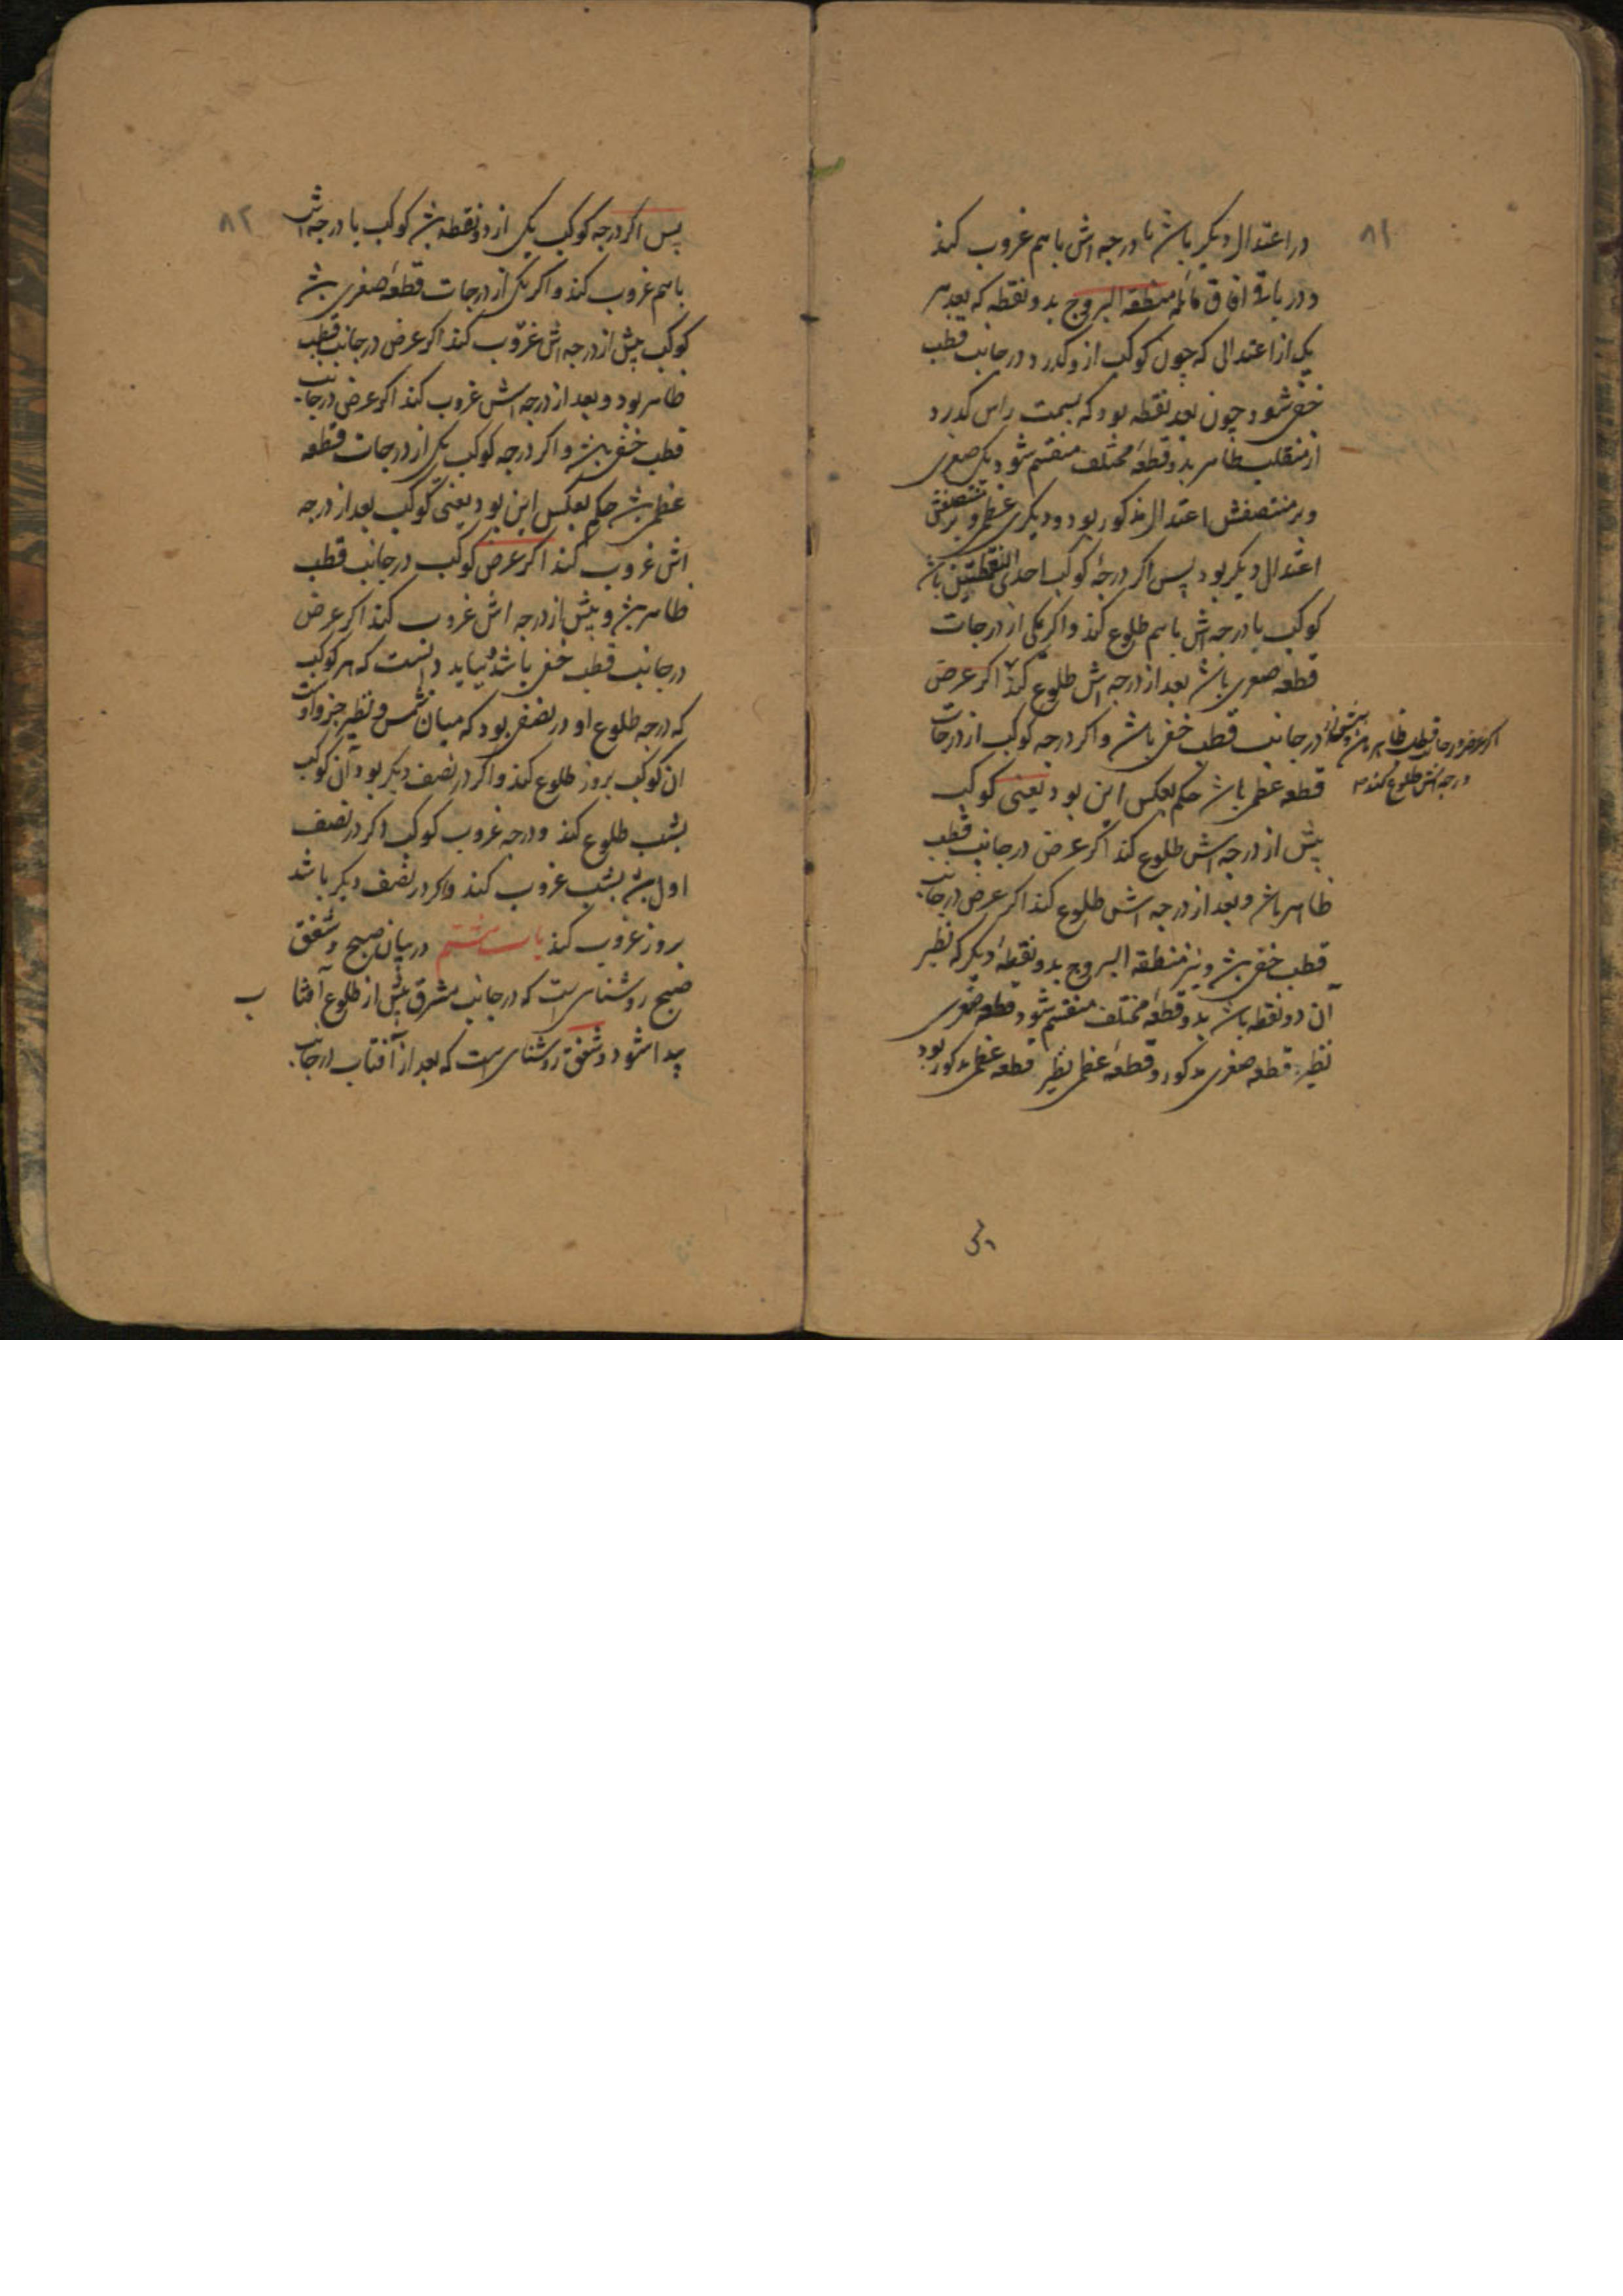 ۸۱
در اعتدال دیکر باشد با درجه اش باهم غروب کند
و در باقی افاق مائله منطقه البروج بدو نقطه که بعد هر
یک از اعتدالی که چون کوکب ازو کذرد در جانب قطب
خفی شود چون بعد نقطه بود که بسمت راس کذرد
از منقلب ظاهر بدو قطعه مختلف منقسم شود یکی صغری
و بر منتصفش اعتدال مذکور بود و دیکری عظمی و بر منتصفش
اعتدال دیکر بود پس اکر درجهٔ کوکب احدی النقطتین باشد
کوکب با درجه اش باهم طلوع کند و اکر یکی از درجات
قطعه صغری باشد بعد از درجه اش طلوع کند اکر عرض
در جانب قطب خفی باشد و اکر درجه کوکب از درجات
اکر عرض در جانب قطب ظاهر باشد و پیش از
درجه اش طلوع کند
قطعه عظمی باشد حکم بعکس این بود یعنی کوکب
پیش از درجه اش طلوع کند اکر عرض در جانب قطب
ظاهر باشد و بعد از درجه اش طلوع کند اکر عرض در جانب
قطب خفی باشد و نیز منطقه البروج بدو نقطهٔ دیکر که نظیر
آن دو نقطه باشد بدو قطعهٔ مختلف منقسم شود قطعه صغری
نظیر قطعه صغری مذکور و قطعهٔ عظمی نظیر قطعه عظمی مذکور بود
۸۲
پس اکر درجه کوکب یکی از دو نقطه باشد کوکب با درجه اش
باهم غروب کند و اکر یکی از درجات قطعهٔ صغری باشد
کوکب پیش از درجه اش غروب کند اکر عرض در جانب قطب
ظاهر بود و بعد از درجه اش غروب کند اکر عرض در جانب
قطب خفی باشد و اکر درجه کوکب یکی از درجات قطعه
عظمی باشد حکم بعکس این بود یعنی کوکب بعد از درجه
اش غروب کند اکر عرض کوکب در جانب قطب
ظاهر باشد و پیش از درجه اش غروب کند اکر عرض
در جانب قطب خفی باشد بباید دانست که هر کوکب
که درجه طلوع او در نصفی بود که میان شمس و نظیر جزو اوست
ان کوکب بروز طلوع کند و اکر در نصف دیکر بود آن کوکب
بشب طلوع کند و درجه غروب کوکب اکر در نصف
اول باشد بشب غروب کند و اکر در نصف دیکر باشد
بروز غروب کند باب هشتم در بیان صبح و شفق
صبح روشنای است که در جانب مشرق پیش از طلوع آفتا ب
پیدا شود و شفق روشنای است که بعد از آفتاب در جانب